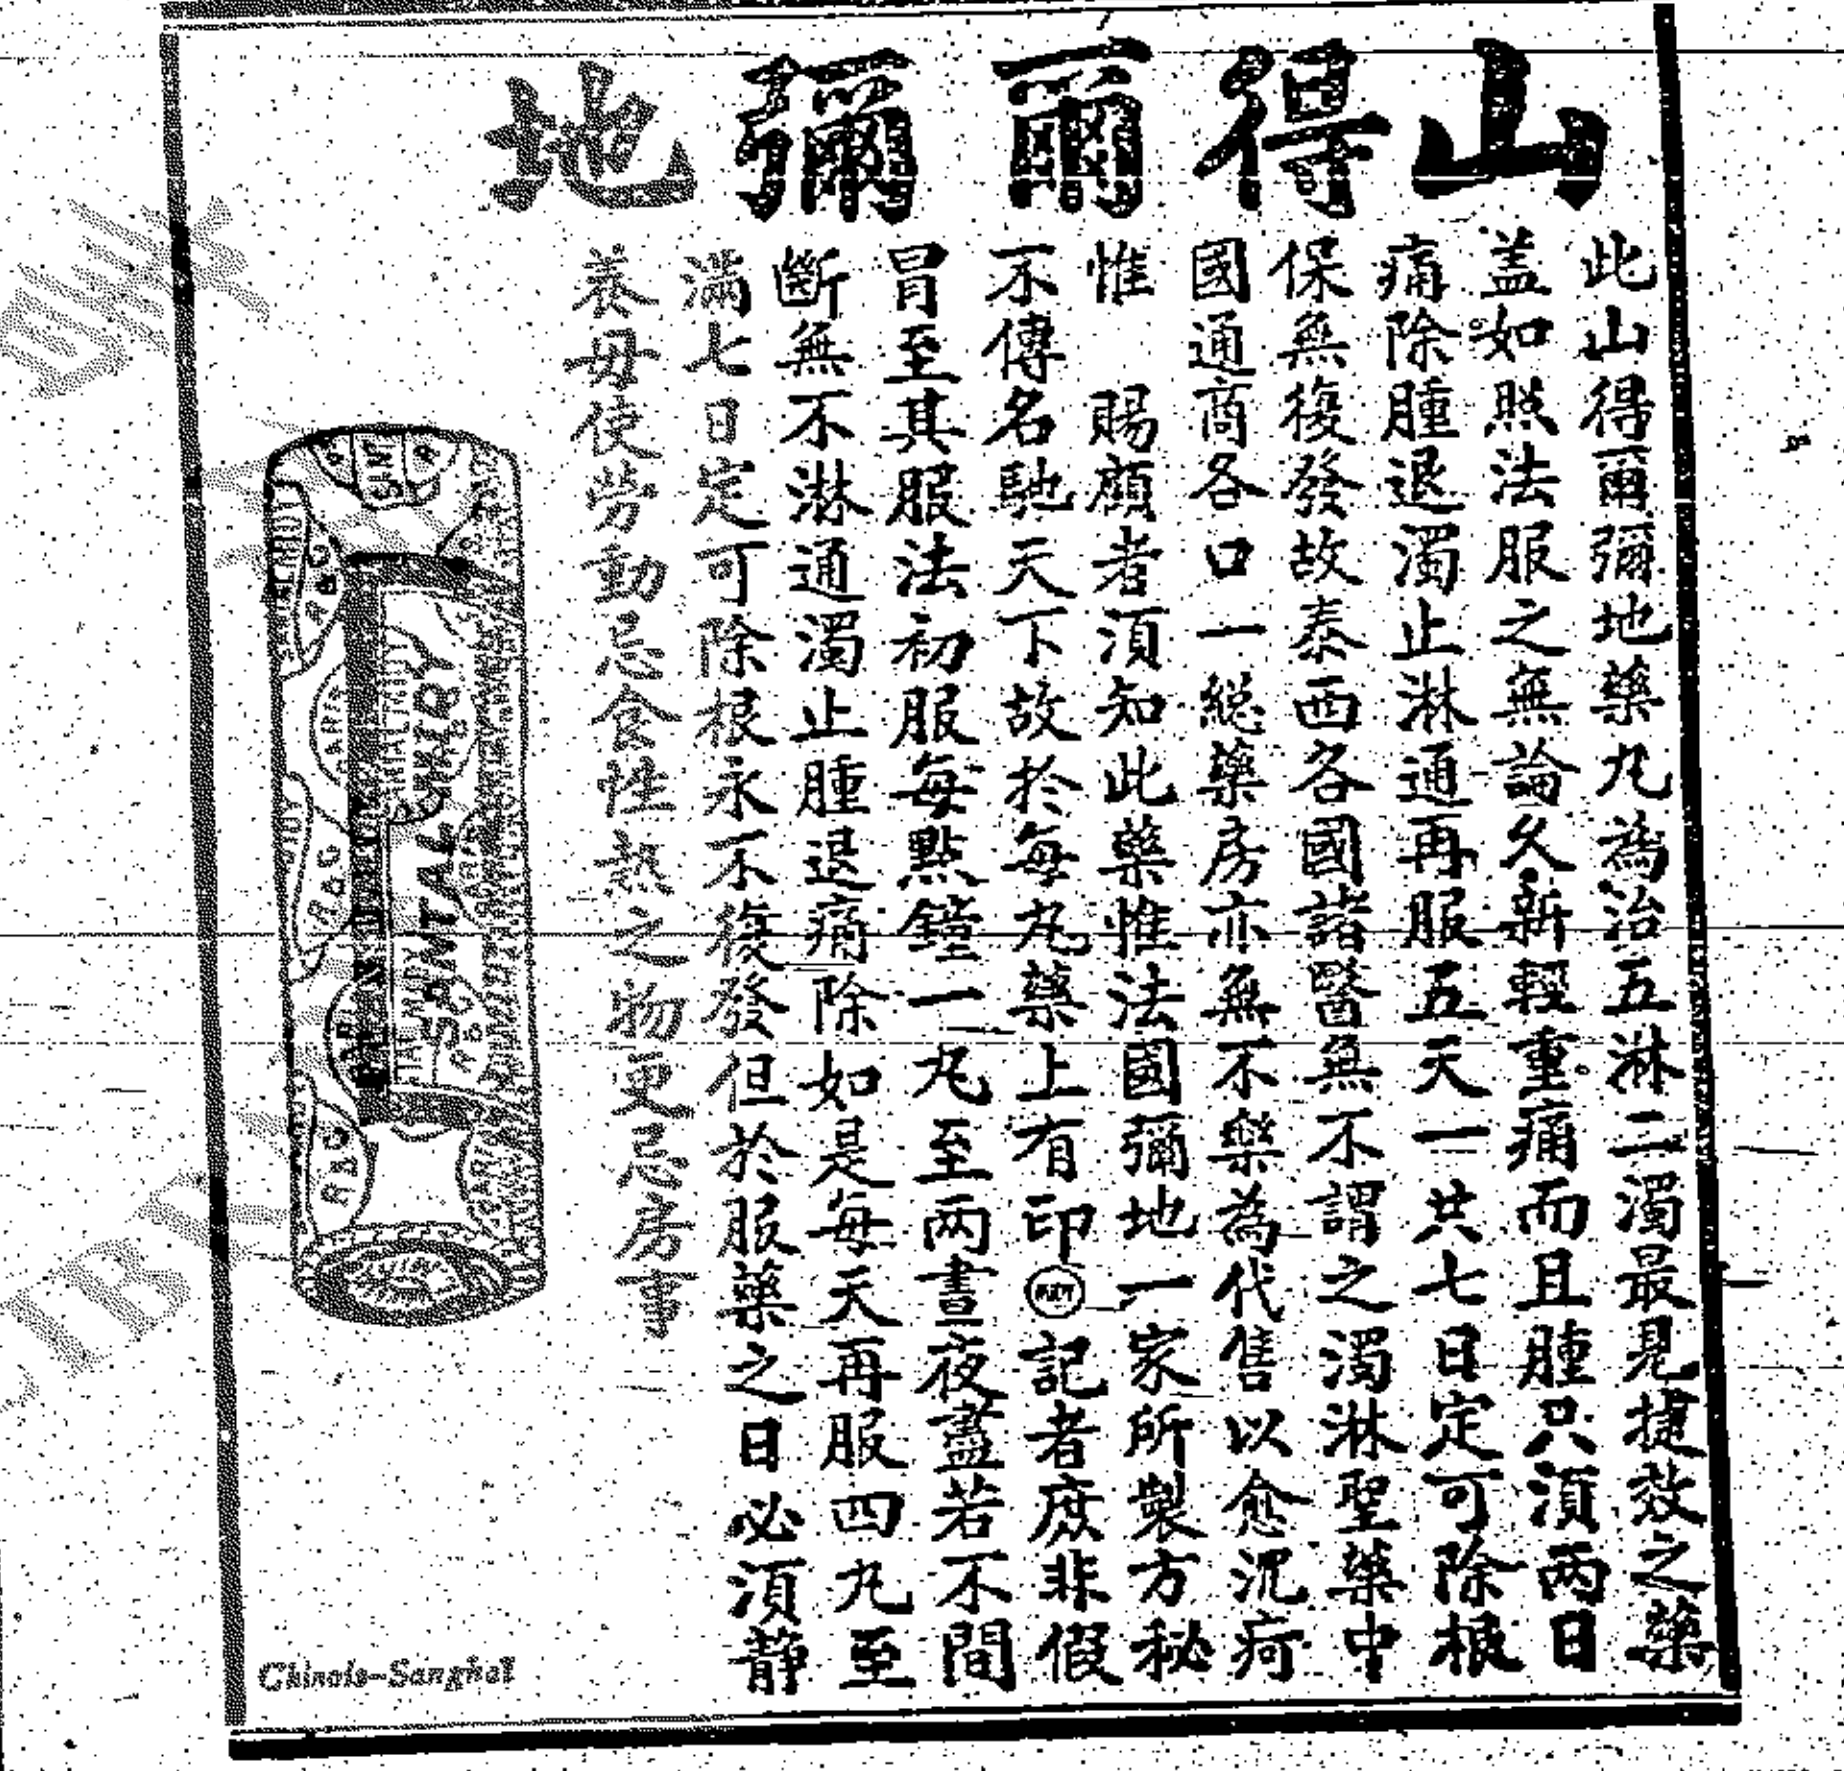 山得爾彌地
此山得爾彌地藥丸為治五淋二濁最見捷效之藥
盖如照法服之無論久新輕重痛而且腫只湏兩日
痛除腫退濁止淋通再服五天一共七日定可除根
保無復發故泰西各國諸醫無不謂之濁淋聖藥中
國通商各口一総藥房亦無不樂為代售以愈沉疴
惟　賜顧者湏知此藥惟法國彌地一家所製方秘
不傳名馳天下故於每丸藥上有印記者庶非假
冒至其服法初服每點鐘一丸至兩晝夜盡若不間
斷無不淋通濁止腫退痛除如是每天再服四丸至
滿七日定可除根永不復發但於服藥之日必湏静
養毋使勞動忌食性熱之物更忌房事
SANTAL MIDY
Chinois-Sanghai